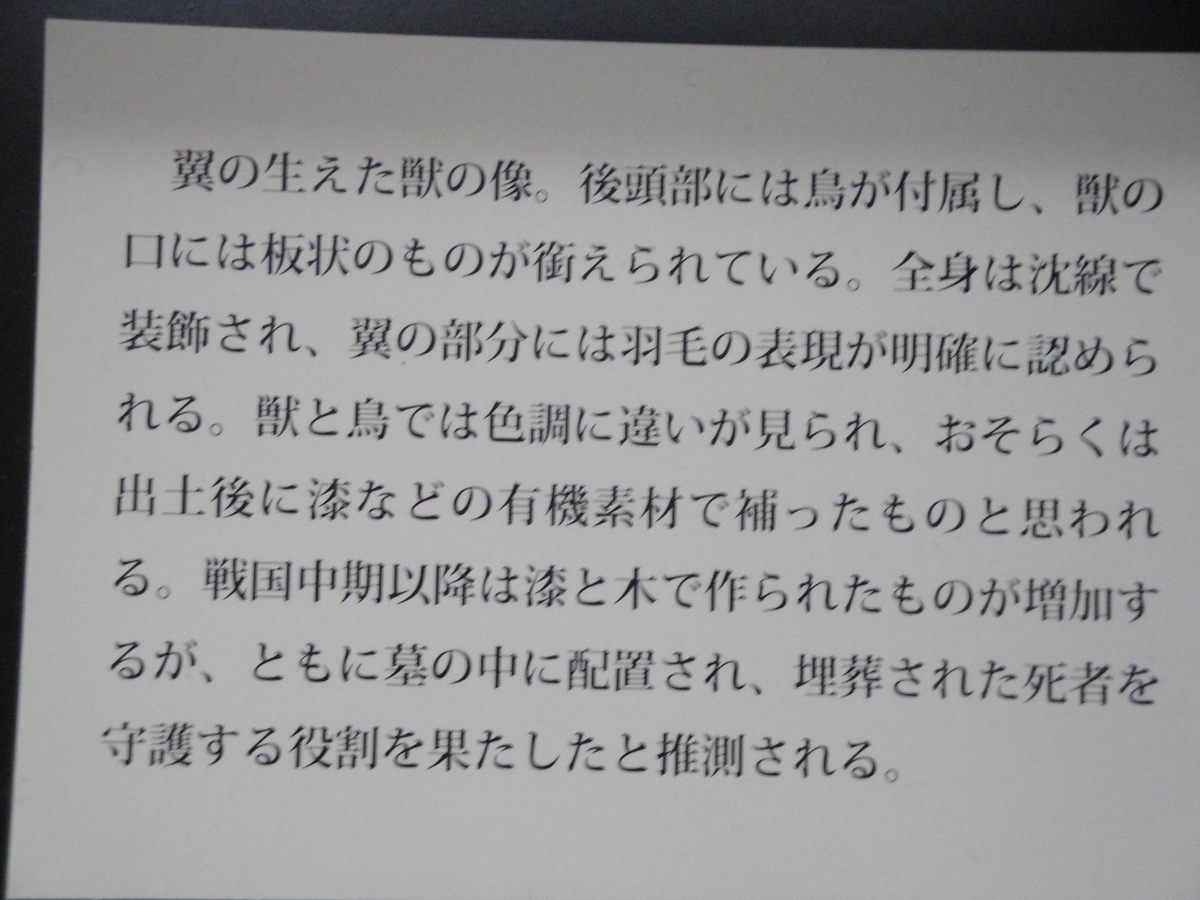 翼の生えた獣の像。後頭部には鳥が付属し、獣の
口には板状のものが銜えられている。全身は沈線で
装飾され、翼の部分には羽毛の表現が明確に認めら
れる。獣と鳥では色調に違いが見られ、おそらくは
出土後に漆などの有機素材で補ったものと思われ
る。戦国中期以降は漆と木で作られたものが増加す
るが、ともに墓の中に配置され、埋葬された死者を
守護する役割を果たしたと推測される。